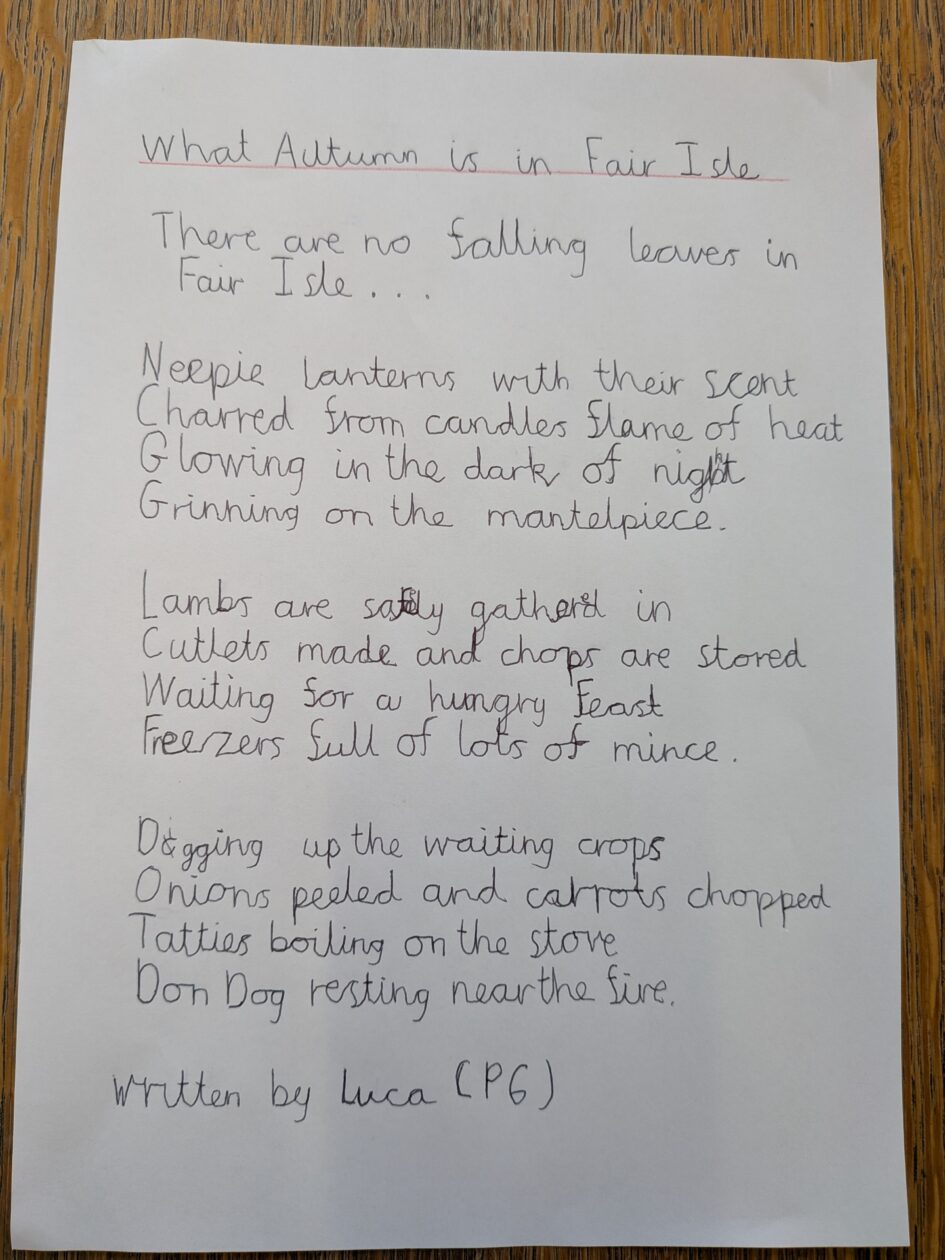 What Autumn is in Fair Isle
There are no falling leaves in
Fair Isle...
Neepie lanterns with their scent
Charred from candles flame of heat
Glowing in the dark of night
Grinning on the mantelpiece.
Lambs are safely gathered in
Cutlets made and chops are stored
Waiting for a hungry feast
Freezers full of lots of mince.
Digging up the waiting crops
Onions peeled and carrots chopped
Tatties boiling on the stove
Don Dog resting near the fire.
Written by Luca (P6)